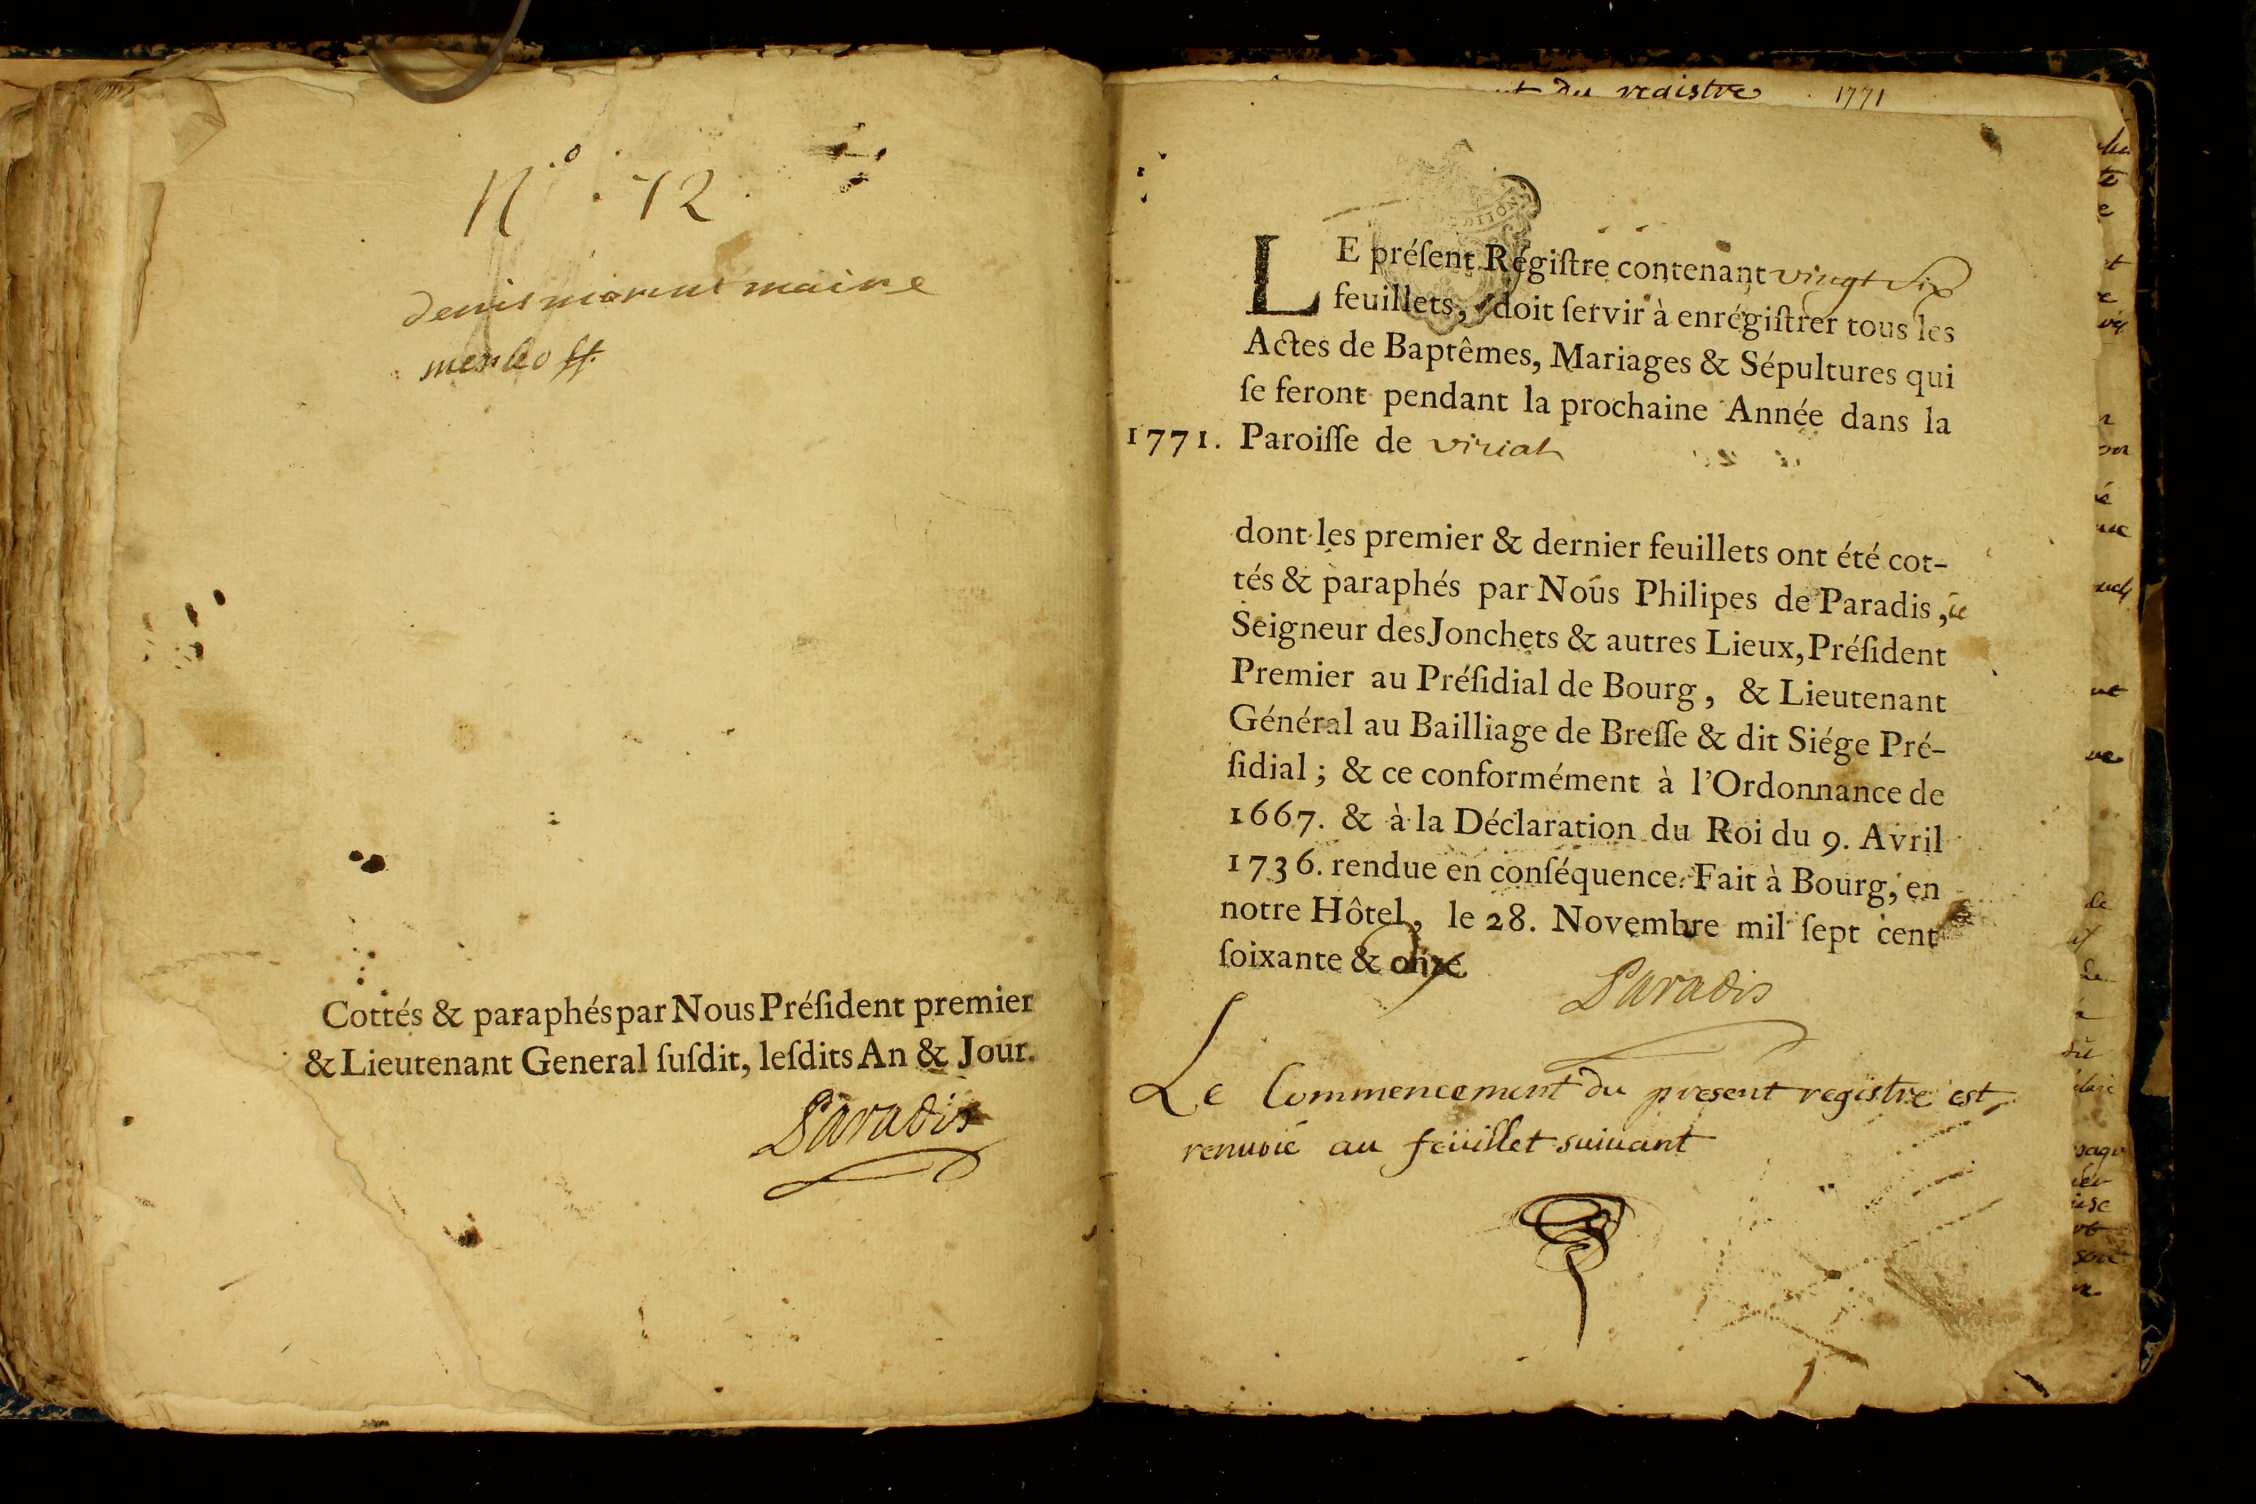 N.º 72
denis morins maire
Cottés & paraphés par Nous Préſident premier
& Lieutenant General ſuſdit, leſdits An & Jour.
Paradis
du registre 1771
LE préſent Régiſtre contenant vingt six
feuillets, doit ſervir à enrégiſtrer tous les
Actes de Baptêmes, Mariages & Sépultures qui
ſe feront pendant la prochaine Année dans la
1771. Paroiſſe de viriat
dont les premier & dernier feuillets ont été cot-
tés & paraphés par Nous Philipes de Paradis,
Seigneur des Jonchets & autres Lieux, Préſident
Premier au Préſidial de Bourg, & Lieutenant
Général au Bailliage de Breſſe & dit Siége Pré-
ſidial ; & ce conformément à l'Ordonnance de
1667. & à la Déclaration du Roi du 9. Avril
1736. rendue en conſéquence. Fait à Bourg, en
notre Hôtel, le 28. Novembre mil ſept cent
ſoixante & onze
Paradis
Le Commencement du present registre est
renvoié au feüillet suivant